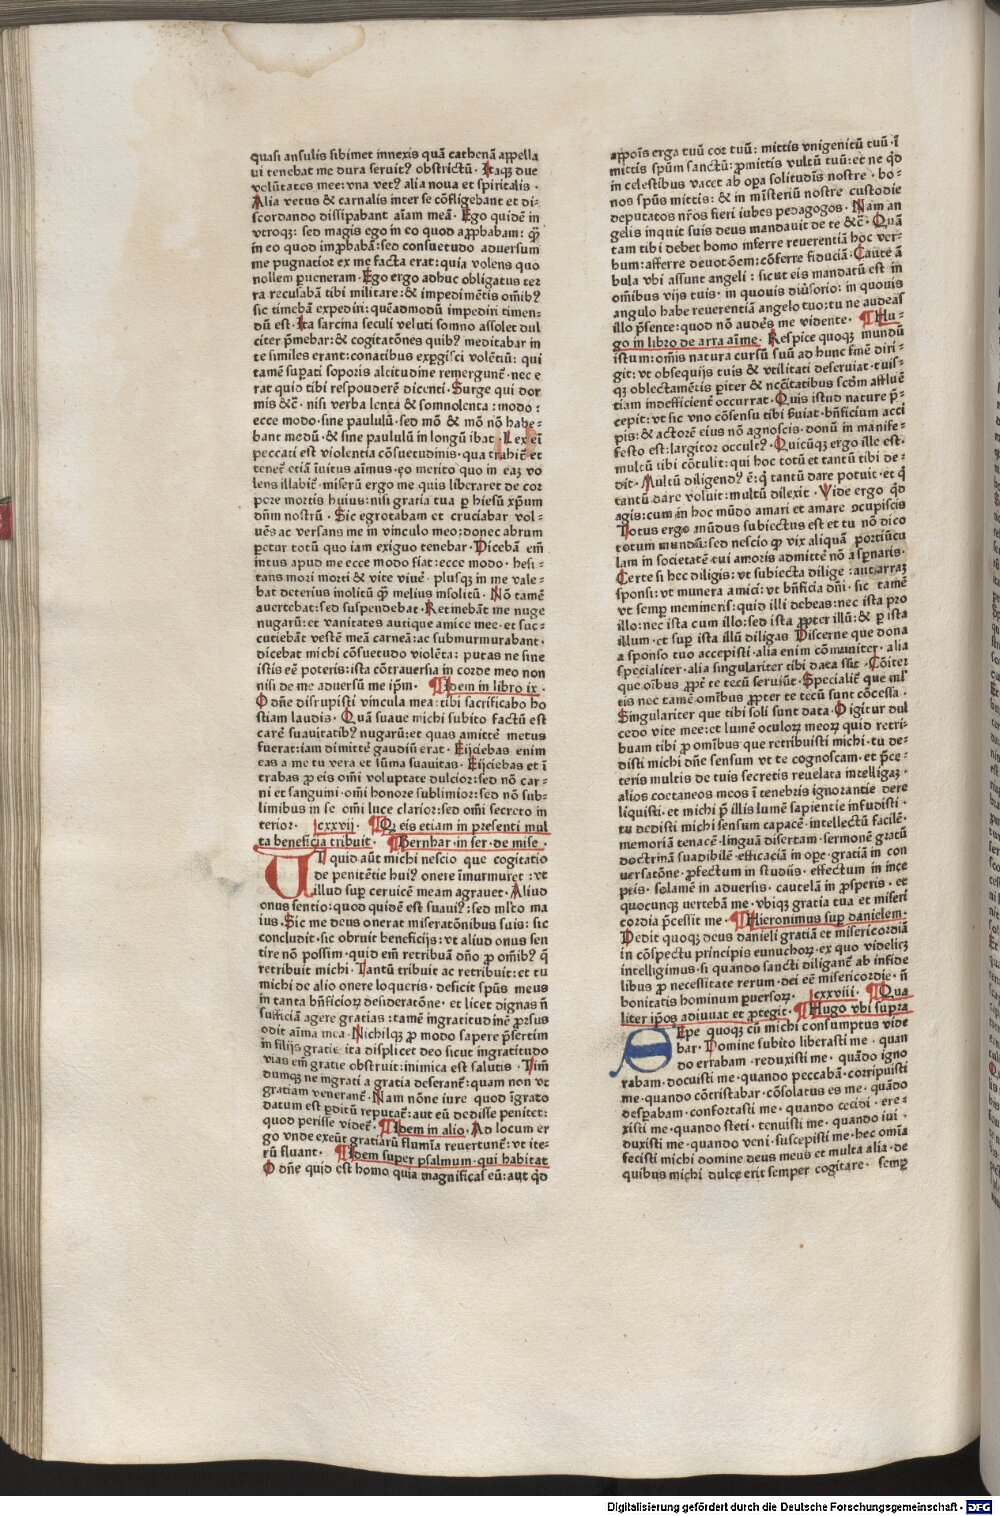 quasi ansulis sibimet innexis quā cathenā appella
ui tenebat me dura seruitꝰ obstrictū · Itaqꝫ due
volūtates mee: vna vetꝰ alia noua et spiritalis ·
Alia vetus & carnalis inter se cōfligebant et di-
scordando dissipabant aīam meā · Ego quidē in
vtroqꝫ: sed magis ego in eo quod approbabam: qꝫ
in eo quod improbabā: sed consuetudo aduersum
me pugnatior ex me facta erat: quia volens quo
nollem perueneram · Ego ergo adhuc obligatus ter
ra recusabā tibi militare: & impedimētis om̄ibꝰ
sic timebā expediri: quēadmodū impediri timen-
dū est · Ita sarcina seculi veluti somno assolet dul
citer p̄mebar: & cogitatōnes quibꝰ meditabar in
te similes erant: conatibus expgisci volētiū: qui
tamē supati soporis altitudine remergunt̄ · nec e
rat quid tibi respouderē dicenti · Surge qui dor
mis &c̄ · nisi verba lenta & somnolenta: modo:
ecce modo · sine paululū · sed mō & mō nō habe-
bant modū · & sine paululū in longū ibat · Lex eī
peccati est violentia cōsuetudinis · qua trahit̄ et
tenet̄ etiā īuitus aīmus · eo merito quo in eaꝫ vo
lens illabit̄ · miserū ergo me quis liberaret de cor
pore mortis huius: nisi gratia tua p hiesū xp̄um
dn̄m nostrū · Sic egrotabam et cruciabar vol-
uēs ac versans me in vinculo meo: donec abrum
petur totū quo iam exiguo tenebar · Dicebā em̄
intus apud me ecce modo fiat: ecce modo · hesi-
tans mori morti & vite viuē · plusqꝫ in me vale-
bat deterius inolitū qꝫ melius insolitū · Nō tamē
auertebat: sed suspendebat · Retinebāt me nuge
nugarū: et vanitates autique amice mee · et suc-
cutiebāt vestē meā carneā: ac submurmurabant ·
dicebat michi cōsuetudo violēta: putas ne sine
istis eē poteris: ista cōtrauersia in corde meo non
nisi de me aduersū me ip̄m · ¶Idem in libro ix ·
O dn̄e disrupisti vincula mea: tibi sacrificabo ho
stiam laudis · Quā suaue michi subito factū est
carē suauitatibꝰ nugarū: et quas amittē metus
fuerat: iam dimittē gaudiū erat · Eijciebas enim
eas a me tu vera et sūma suauitas · Eijciebas et ī
trabas p eis om̄i voluptate dulcior: sed nō car-
ni et sanguini · om̄i honore sublimior: sed nō sub-
limibus in se om̄i luce clarior: sed om̄i secreto in
terior · lcxxvij · ¶Q eis etiam in presenti mul
ta beneficia tribuit · ¶Bernhar · in ser · de mise ·
UT quid aūt michi nescio que cogitatio
de penitētie huiꝰ onere īmurmuret: vt
illud sup ceruicē meam agrauet · Aliud
onus sentio: quod quidē est suauiꝰ: sed ml̄to ma
ius · Sic me deus onerat miseratōnibus suis: sic
concludit · sic obruit beneficijs: vt aliud onus sen
tire nō possim · quid em̄ retribuā dn̄o p om̄ibꝰ q̄
retribuit michi · Tantū tribuit ac retribuit: et tu
michi de alio onere loqueris · deficit sp̄us meus
in tanta bn̄ficioꝝ desideratōne · et licet dignas n̄
sufficiā agere gratias: tamē ingratitudinē prorsus
odit aīma mea · Nichilqꝫ p modo sapere p̄sertim
in filijs gratie ita displicet deo sicut ingratitudo
vias em̄ gratie obstruit: inimica est salutis · Tim̄
dumqꝫ ne ingrati a gratia deserant̄: quam non vt
gratiam venerant̄ · Nam nōne iure quod īgrato
datum est pditū reputat̄: aut eū dedisse penitet:
quod perisse videt̄ · ¶Idem in alio · Ad locum er
go vnde exeūt gratiarū flumīa reuertunt̄: vt ite-
rū fluant · ¶Idem super psalmum · qui habitat
O dn̄e quid est homo quia magnificas eū: aut qd̄
appoīs erga tuū cor tuū: mittis vnigenitū tuū · ī
mittis sp̄um sanctū: pmittis vultū tuū: et ne qd̄
in celestibus vacet ab opa solitudīs nostre · bo-
nos sp̄us mittis: & in mīsteriū nostre custodie
deputatos nr̄os fieri iubes pedagogos · Nam an
gelis inquit suis deus mandauit de te &c̄ · Quā
tam tibi debet homo inferre reuerentiā hoc ver-
bum: afferre deuotōem: cōferre fiduciā · Caute ā
bula vbi assunt angeli: sicut eis mandatū est in
om̄ibus vijs tuis · in quouis diūsorio: in quouis
angulo habe reuerentiā angelo tuo: tu ne audeas
illo p̄sente: quod nō audēs me vidente · ¶Hu-
go in libro de arra aīme · Respice quoqꝫ mundū
istum: om̄is natura cursū suū ad hunc finē diri-
git: vt obsequijs tuis & vtilitati deseruiat · tuis-
qꝫ oblectamētis piter & nc̄citatibus scd̄m affluē
tiam indeficient̄ occurrat · Quis istud nature p̄-
cepit: vt sic vno cōsensu tibi s̄uiat · bn̄ficium acci
pis: & actorē eius nō agnoscis · donū in manife-
festo est: largitor occultꝰ · Quicūqꝫ ergo ille est ·
multū tibi cōtulit: qui hoc totū et tantū tibi de-
dit · Multū diligendꝰ ē: q̄ tantū dare potuit · et q̄
tantū dare voluit: multū dilexit · Vide ergo qd̄
agis: cum in hoc mūdo amari et amare cupiscis
Totus ergo mūdus subiectus est et tu nō dico
totum mundū: sed nescio qꝫ vix aliquā portiūcu
lam in societatē tui amoris admittē nō aspnaris ·
Certe si hec diligis: vt subiecta dilige: aut arraꝫ
sponsi: vt munera amici: vt bn̄ficia dn̄i · sic tamē
vt semp memineris: quid illi debeas: nec ista pro
illo: nec ista cum illo: sed ista propter illū: & p ista
illum · et sup ista illū diligas Discerne que dona
a sponso tuo accepisti · alia enim cōmuniter · alia
specialiter · alia singulariter tibi data sūt · Cōiter
que oībus ppt̄ te tecū seruiūt · Specialit̄ que ml̄
tis nec tamē omībus propter te tecū sunt cōcessa:
Singulariter que tibi soli sunt data · O igitur dul
cedo vite mee: et lumē oculoꝝ meoꝝ quid retri-
buam tibi p omībus que retribuisti michi · tu de-
disti michi dn̄e sensum vt te cognoscam · et p̄ce-
teris multis de tuis secretis reuelata intelligaꝫ ·
alios coetaneos meos ī tenebris ignorantie dere
liquisti · et michi p̄ illis lumē sapientie infudisti ·
tu dedisti michi sensum capacē · intellectū facilē ·
memoriā tenacē · linguā disertam · sermonē gratū
doctrinā suadibilē · efficaciā in ope · gratiā in con
uersatōne · pfectum in studijs · effectum in ince
ptis · solamē in aduersis · cautelā in psperis · et
quocunqꝫ uertebā me · vbiqꝫ gratia tua et miseri
cordia p̄cessit me · ¶Hieronimus sup danielem ·
Dedit quoqꝫ deus danieli gratiā et misericordiā
in cōspectu principis eunuchoꝝ · ex quo videlicꝫ
intelligimus · si quando sancti diligant̄ ab infide
libus p necessitate rerum · dei eē misericordie · n̄
bonitatis hominum puersoꝝ · lcxxviii · ¶Qua
liter ip̄os adiuuat et ptegit · ¶Hugo vbi supra
SEpe quoqꝫ cū michi consumptus vide
bar · Domine subito liberasti me · quan
do errabam · reduxisti me · quādo igno
rabam · docuisti me · quando peccabā · corripuisti
me · quando cōtristabar · cōsolatus es me · quādo
despabam · confortasti me · quando cecidi · ere-
xisti me · quando steti · tenuisti me · quando iui ·
duxisti me · quando veni · suscepisti me · hec omīa
fecisti michi domine deus meus et multa alia · de
quibus michi dulce erit semper cogitare · semp
Digitalisierung gefördert durch die Deutsche Forschungsgemeinschaft · DFG